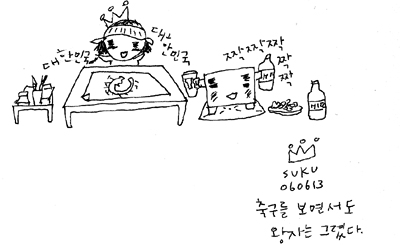 대~한민국
대~
한민국
짝짝짝
짝
짝
SUKU
060613
축구를 보면서도
왕자는 그렸다.